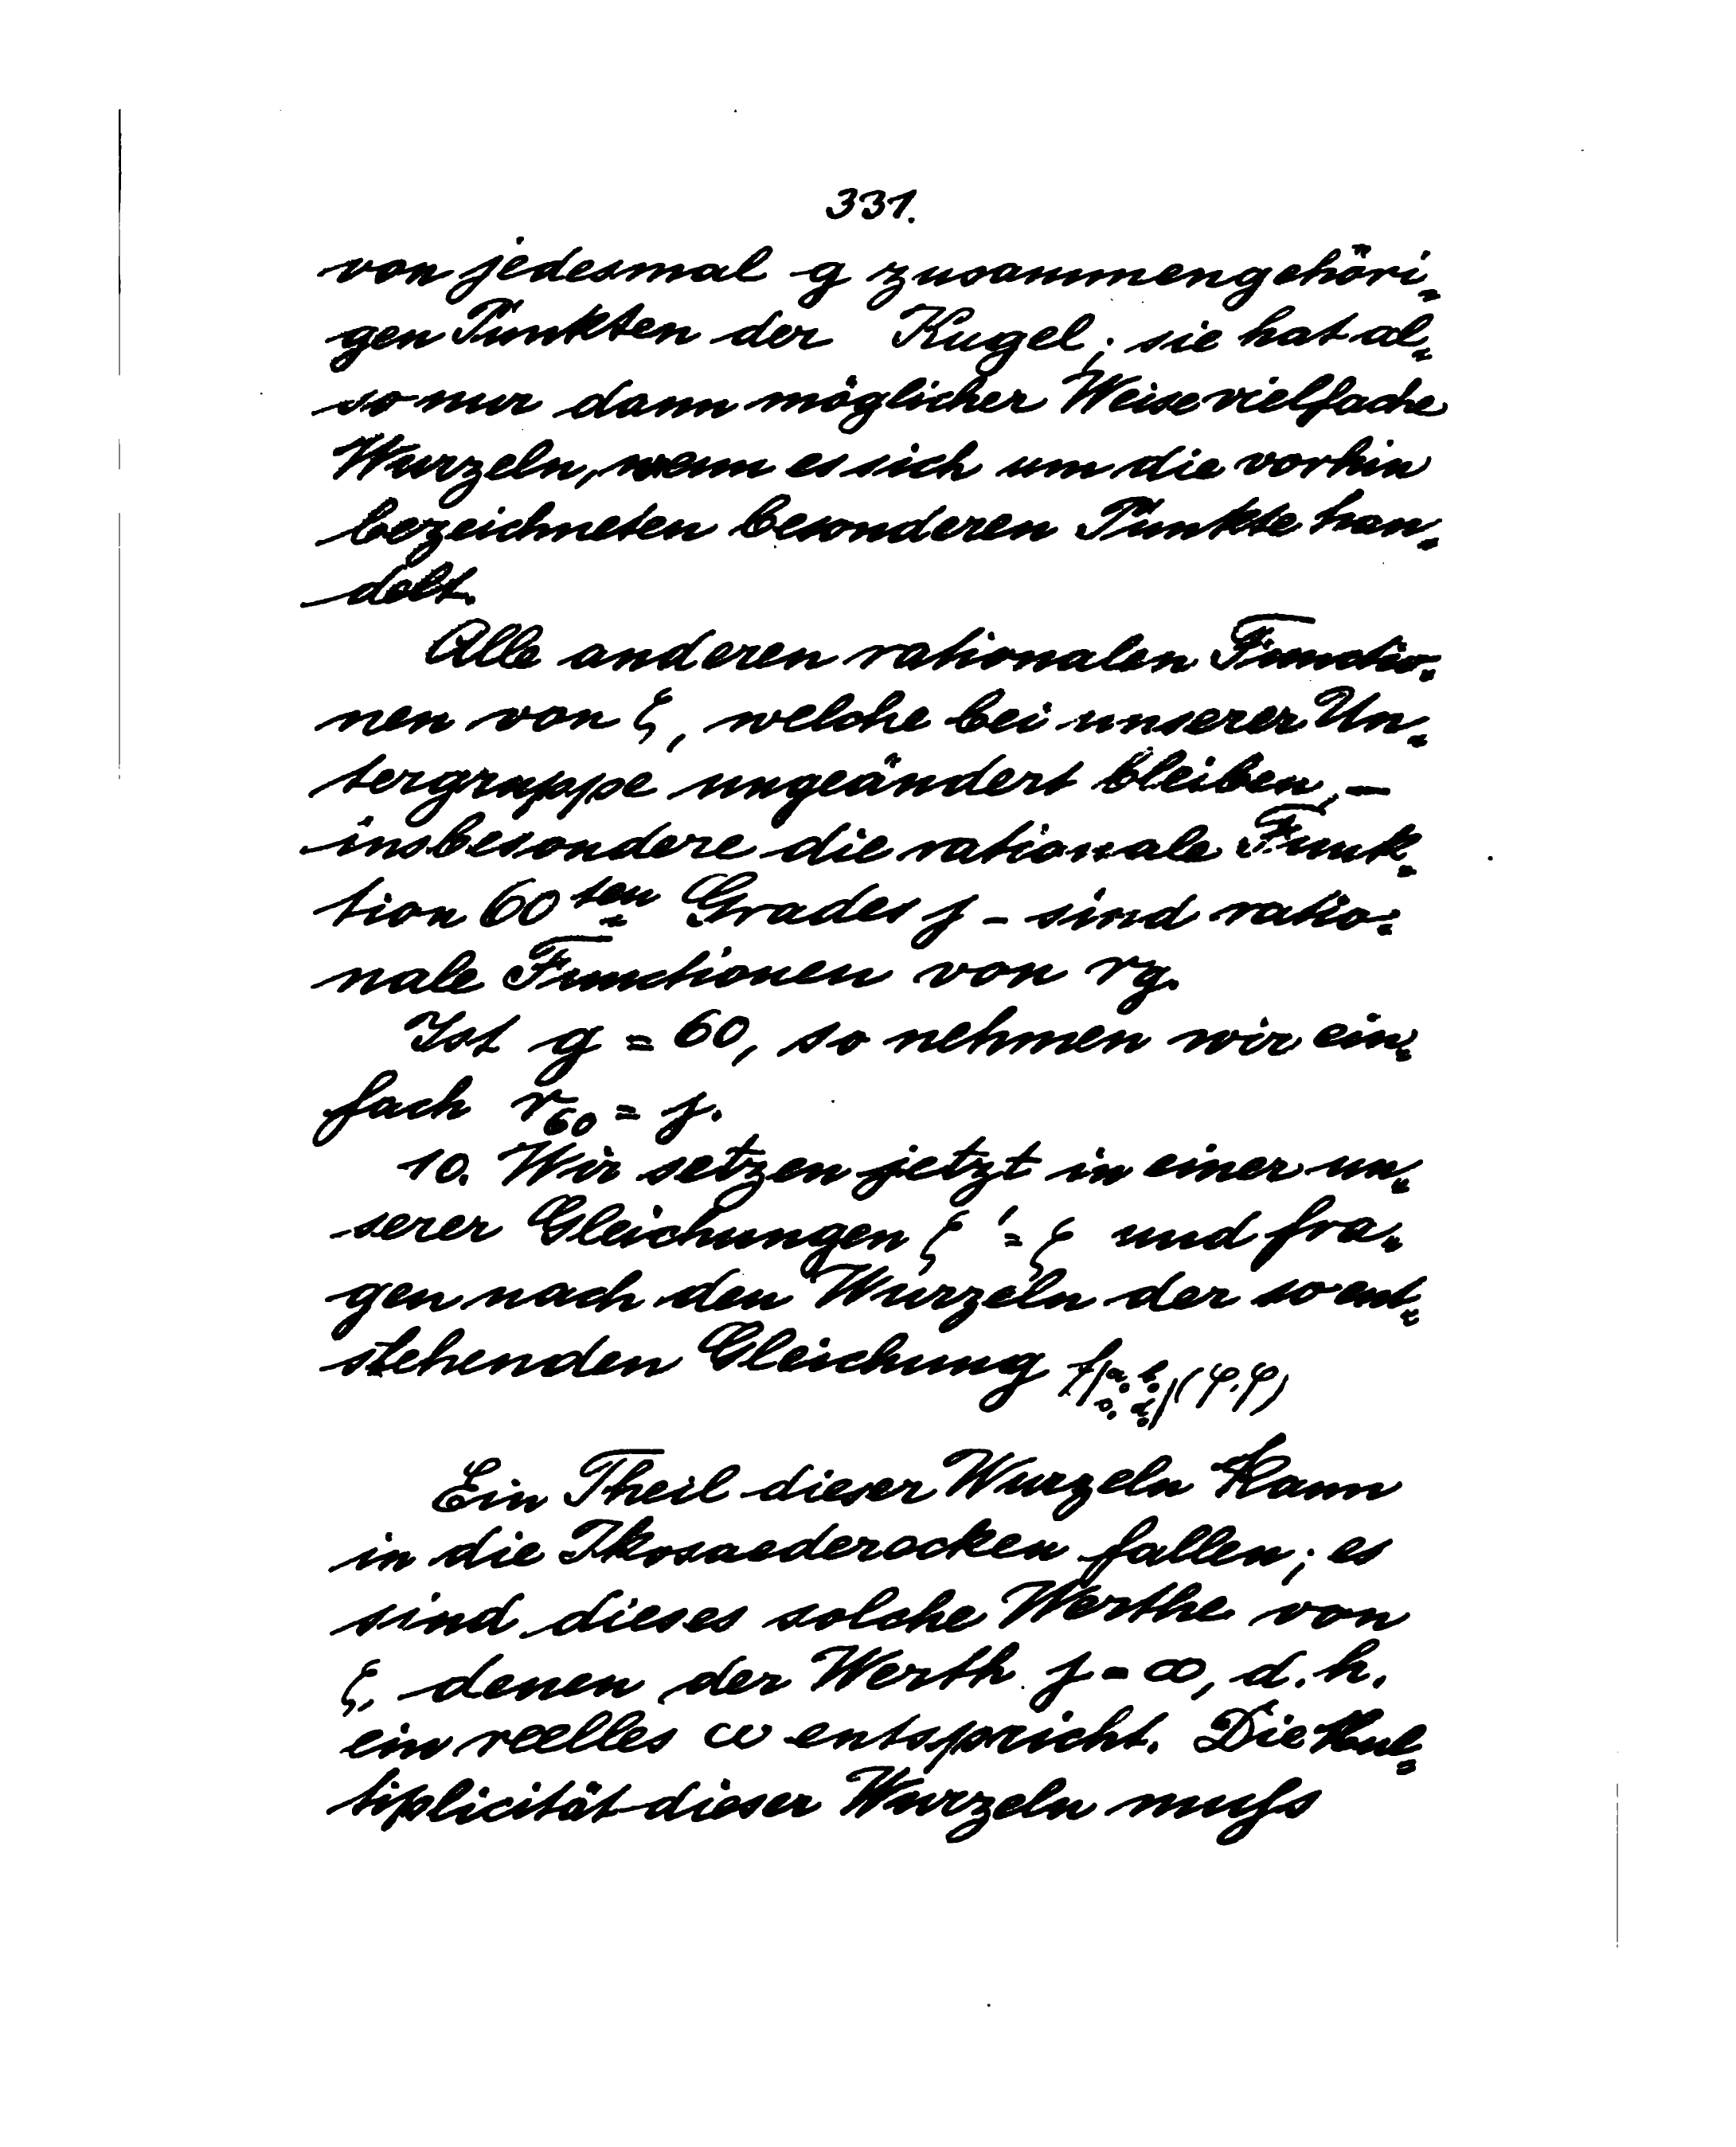 331.
von jedesmal g zusammengehöri=
gen Punkten der Kugel; sie hat al=
so nur dann möglicher Weise vielfache
Wurzeln, wenn es sich um die vorhin
bezeichneten besonderen Punkte han=
delt.
Alle anderen rationalen Functio=
nen von ζ, welche bei unserer Un=
tergruppe ungeändert bleiben, –
insbesondere die rationale Funk=
tion 60ten Grades j – sind ratio=
nale Functionen von rg.
Ist g = 60, so nehmen wir ein=
fach r₆₀ = j.
10. Wir setzen jetzt in einer un=
serer Gleichungen ζ' = ζ und fra=
gen nach den Wurzeln der so ent=
stehenden Gleichung
Ein Theil dieser Wurzeln kann
in die Ikosaederecken fallen; es
sind dieses solche Werthe von
ζ, denen der Werth j = ∞, d. h.
ein reelles ω entspricht. Die Mul=
tiplicität dieser Wurzeln muſs